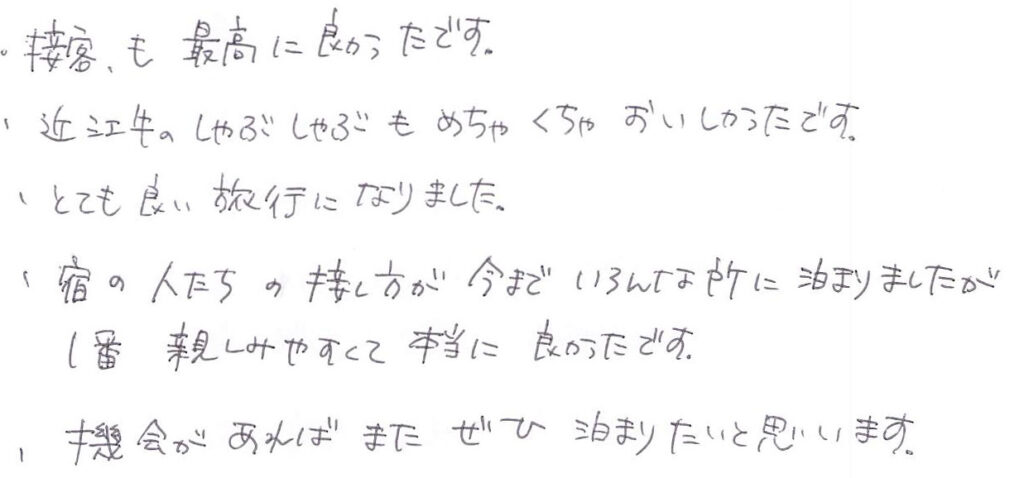 ・接客、も 最高に良かったです。
・近江牛のしゃぶしゃぶも めちゃくちゃ おいしかったです。
・とても良い旅行になりました。
・宿の人たちの接し方が 今まで いろんな所に 泊まりましたが
1番 親しみやすくて 本当に 良かったです。
・機会があればまた ぜひ 泊まりたいと思います。